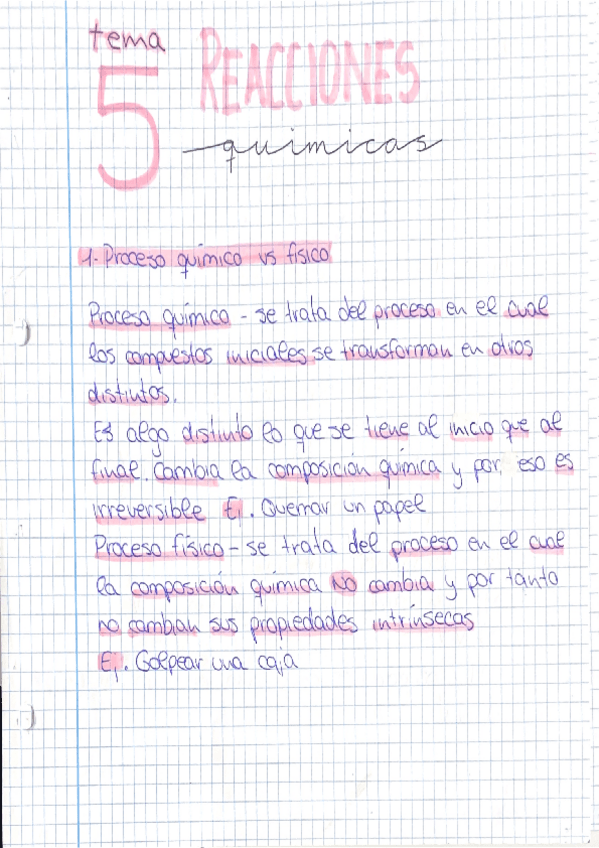 tema
5 REACCIONES
químicas
1- Proceso químico vs físico
Proceso químico - se trata del proceso en el cual
los compuestos iniciales se transforman en otros
distintos.
Es algo distinto lo que se tiene al inicio que al
final. Cambia la composición química y por eso es
irreversible Ej. Quemar un papel
Proceso físico - se trata del proceso en el cual
la composición química NO cambia y por tanto
no cambian sus propiedades intrínsecas
Ej. Golpear una caja